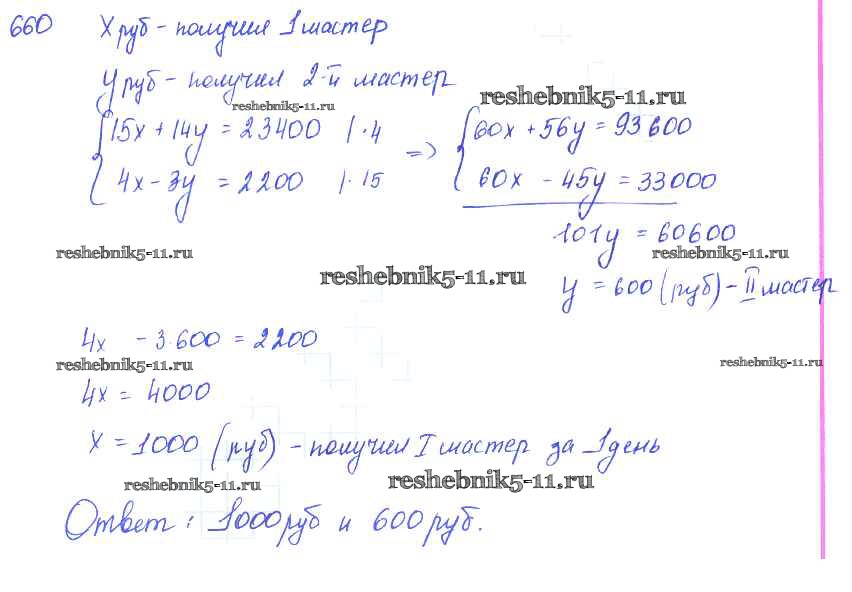 660 X руб - получил 1 мастер
У руб - получил 2-й мастер
reshebnik5-11.ru
reshebnik5-11.ru
15x + 14y = 23400 | · 4 => 60x + 56y = 93600
4x - 3y = 2200 | · 15 60x - 45y = 33000
101y = 60600
reshebnik5-11.ru
reshebnik5-11.ru
reshebnik5-11.ru
y = 600 (руб) - II мастер
4x - 3·600 = 2200
reshebnik5-11.ru
reshebnik5-11.ru
4x = 4000
x = 1000 (руб) - получил I мастер за 1 день
reshebnik5-11.ru
reshebnik5-11.ru
Ответ: 1000 руб и 600 руб.